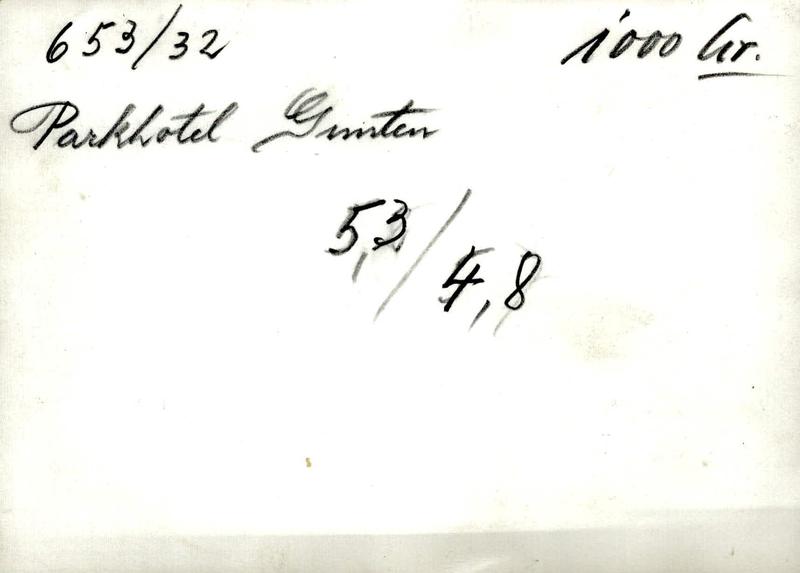 653/32 1000 Gr.
Parkhotel Gunten
5,3/4,8